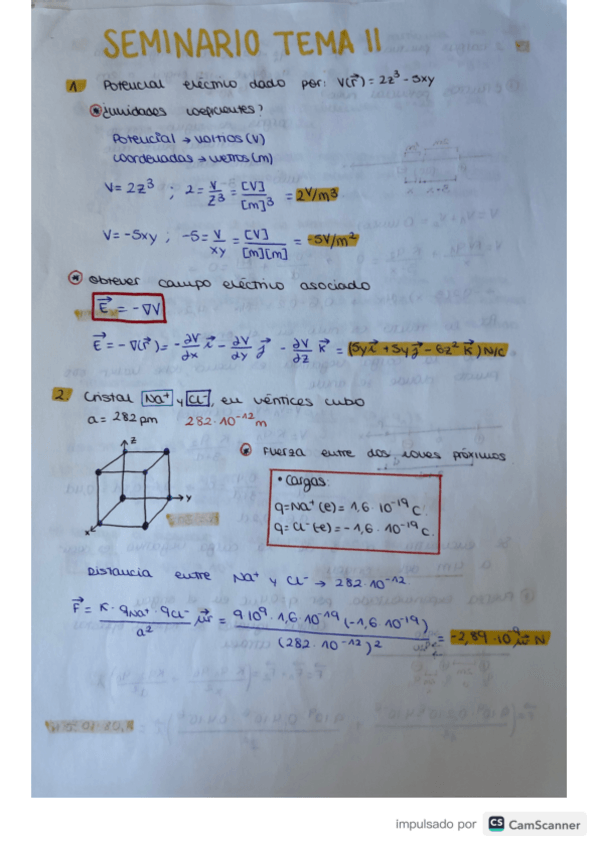 SEMINARIO TEMA 11
1. Potencial eléctrico dado por: V(r⃗) = 2z³ - 5xy
¿unidades coeficientes?
Potencial → voltios (V)
coordenadas → metros (m)
V = 2z³ ; 2 = V/z³ = [V]/[m]³ = 2V/m³
V = -5xy ; -5 = V/xy = [V]/[m][m] = -5V/m²
obtener campo eléctrico asociado
E⃗ = -∇V
E⃗ = -∇(r⃗) = -∂V/∂x i⃗ - ∂V/∂y j⃗ - ∂V/∂z k⃗ = (5y i⃗ + 5y j⃗ - 6z² k⃗) N/C
2. Cristal Na⁺ y Cl⁻, en vértices cubo
a = 282 pm 282·10⁻¹² m
z
y
x
Fuerza entre dos iones próximos
• Cargas:
q = Na⁺ (e) = 1,6·10⁻¹⁹ C.
q = Cl⁻ (-e) = -1,6·10⁻¹⁹ C.
Distancia entre Na⁺ y Cl⁻ → 282·10⁻¹²
F⃗ = K·qNa⁺·qCl⁻/a² u⃗r = 9·10⁹·1,6·10⁻¹⁹(-1,6·10⁻¹⁹)/(282·10⁻¹²)² = -2,89·10⁻⁹ u⃗r N
impulsado por CS CamScanner